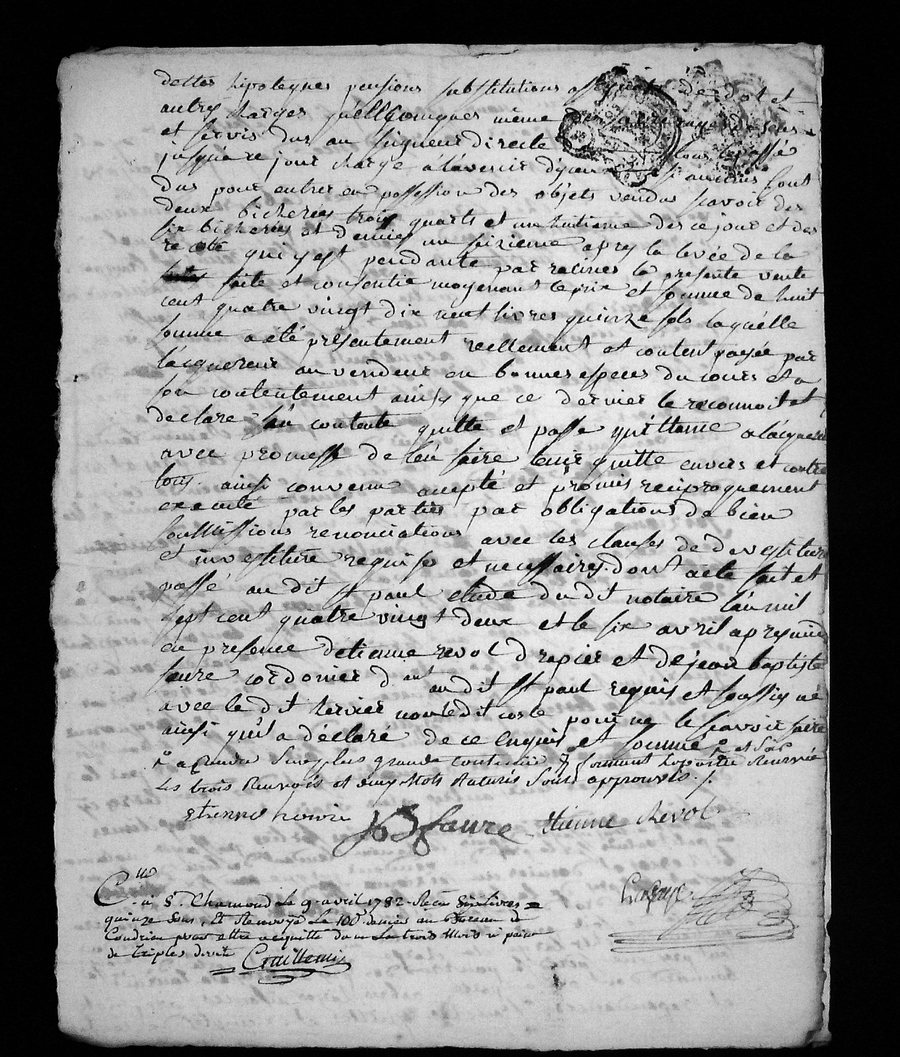 dettes hipoteques pensions substitutions de dot et
autres charges quelleconques même
et servis dus au seigneur directe
jusqua ce jour charge a lavenir
dus pour entrer en possession des objets vendus scavoir des
deux bicherées trois quarts et un huitieme des ce jour et des
six bicherées et demies un sizieme apres la levée de la
recolte qui y est pendante par racines la presente vente
faite et consentie moyenant le prix et somme de huit
cent quatre vingt dix neuf livres quinze sols laquelle
somme a été présentement reellement et content payée par
lacquereur au vendeur en bonnes especes du cours et a
son contentement ainsy que ce dernier le reconnoit et
declare s'en contente quitte et passe quittance a lacquereur
avec promesse de l'en faire tenir quitte envers et contre
tous. ainsi convenu accepté et promis reciproquement
executé par les parties par obligations de bien
soumissions renonciations avec les clauses de devestiture
et investiture requises et necessaires, dont acte fait et
passé au dit st paul etude du dit notaire l'an mil
sept cent quatre vingt deux et le six avril apres midi
en presence detienne revol drapier et de jean baptiste
faure cordonier dt au dit st paul requis et soussigné
avec le dit hervier non ledit coste pour ne le scavoir faire
ainsi qu'il a déclaré de ce enquis et sommé
plus grande
les trois Renvois et cinq Mots Raturés sont approuvés ./.
JB faure Etienne Revol
C.lle à St. Chamond Le 9. avril 1782. Recu Six livres
quinze sous, Et Renvoyé Le 100e. denier au Bureau de
Condrieu pour etre acquitté dans Les trois Mois à peine
de triples droit